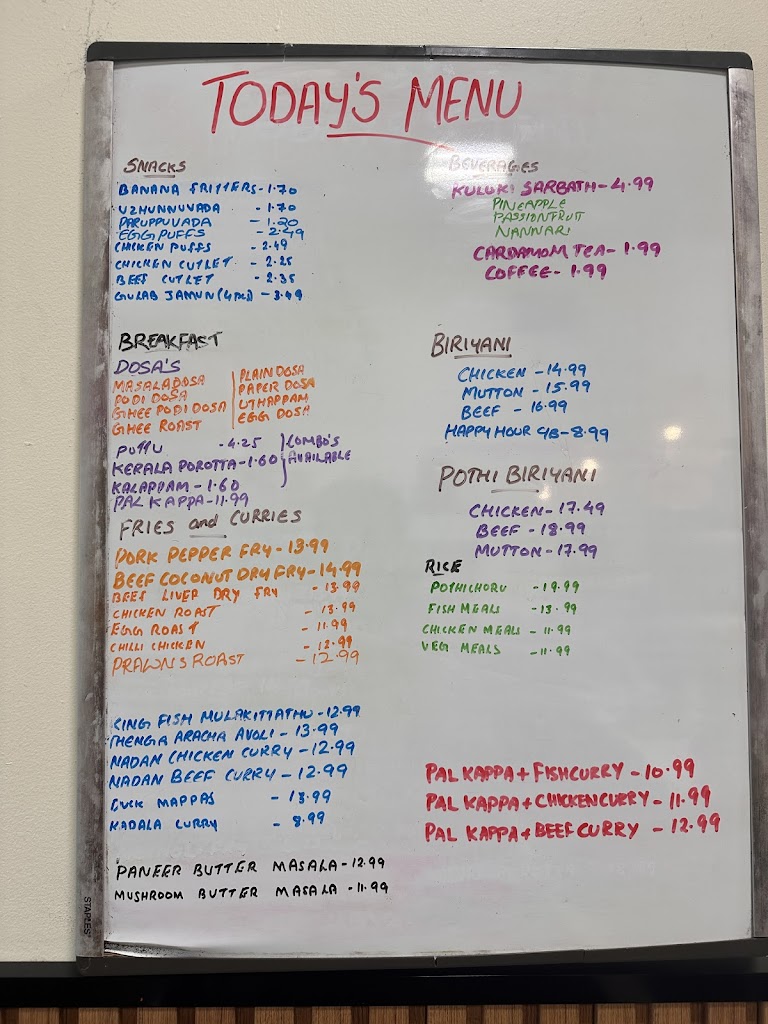 TODAY'S MENU
SNACKS
BANANA FRITTERS - 1.70
UZHUNNUVADA - 1.70
PARUPPUVADA - 1.20
EGG PUFFS - 2.49
CHICKEN PUFFS - 2.49
CHICKEN CUTLET - 2.25
BEEF CUTLET - 2.35
GULAB JAMUN (4 PCS) - 3.49
BREAKFAST
DOSA'S
MASALA DOSA
PODI DOSA
GHEE PODI DOSA
GHEE ROAST
PLAIN DOSA
PAPER DOSA
UTHAPPAM
EGG DOSA
PUTTU - 4.25
KERALA POROTTA - 1.60
KALAPPAM - 1.60
COMBO'S
AVAILABLE
PAL KAPPA - 11.99
FRIES and CURRIES
PORK PEPPER FRY - 13.99
BEEF COCONUT DRY FRY - 14.99
BEEF LIVER DRY FRY - 13.99
CHICKEN ROAST - 13.99
EGG ROAST - 11.99
CHILLI CHICKEN - 12.99
PRAWNS ROAST - 12.99
KING FISH MULAKITTATHU - 12.99
THENGA ARACHA AVOLI - 13.99
NADAN CHICKEN CURRY - 12.99
NADAN BEEF CURRY - 12.99
DUCK MAPPAS - 13.99
KADALA CURRY - 8.99
PANEER BUTTER MASALA - 12.99
MUSHROOM BUTTER MASALA - 11.99
BEVERAGES
KULUKI SARBATH - 4.99
PINEAPPLE
PASSIONFRUIT
NANNARI
CARDAMOM TEA - 1.99
COFFEE - 1.99
BIRIYANI
CHICKEN - 14.99
MUTTON - 15.99
BEEF - 16.99
HAPPY HOUR CB - 8.99
POTHI BIRIYANI
CHICKEN - 17.49
BEEF - 18.99
MUTTON - 17.99
RICE
POTHICHORU - 19.99
FISH MEALS - 13.99
CHICKEN MEALS - 11.99
VEG MEALS - 11.99
PAL KAPPA + FISH CURRY - 10.99
PAL KAPPA + CHICKEN CURRY - 11.99
PAL KAPPA + BEEF CURRY - 12.99
STAPLES